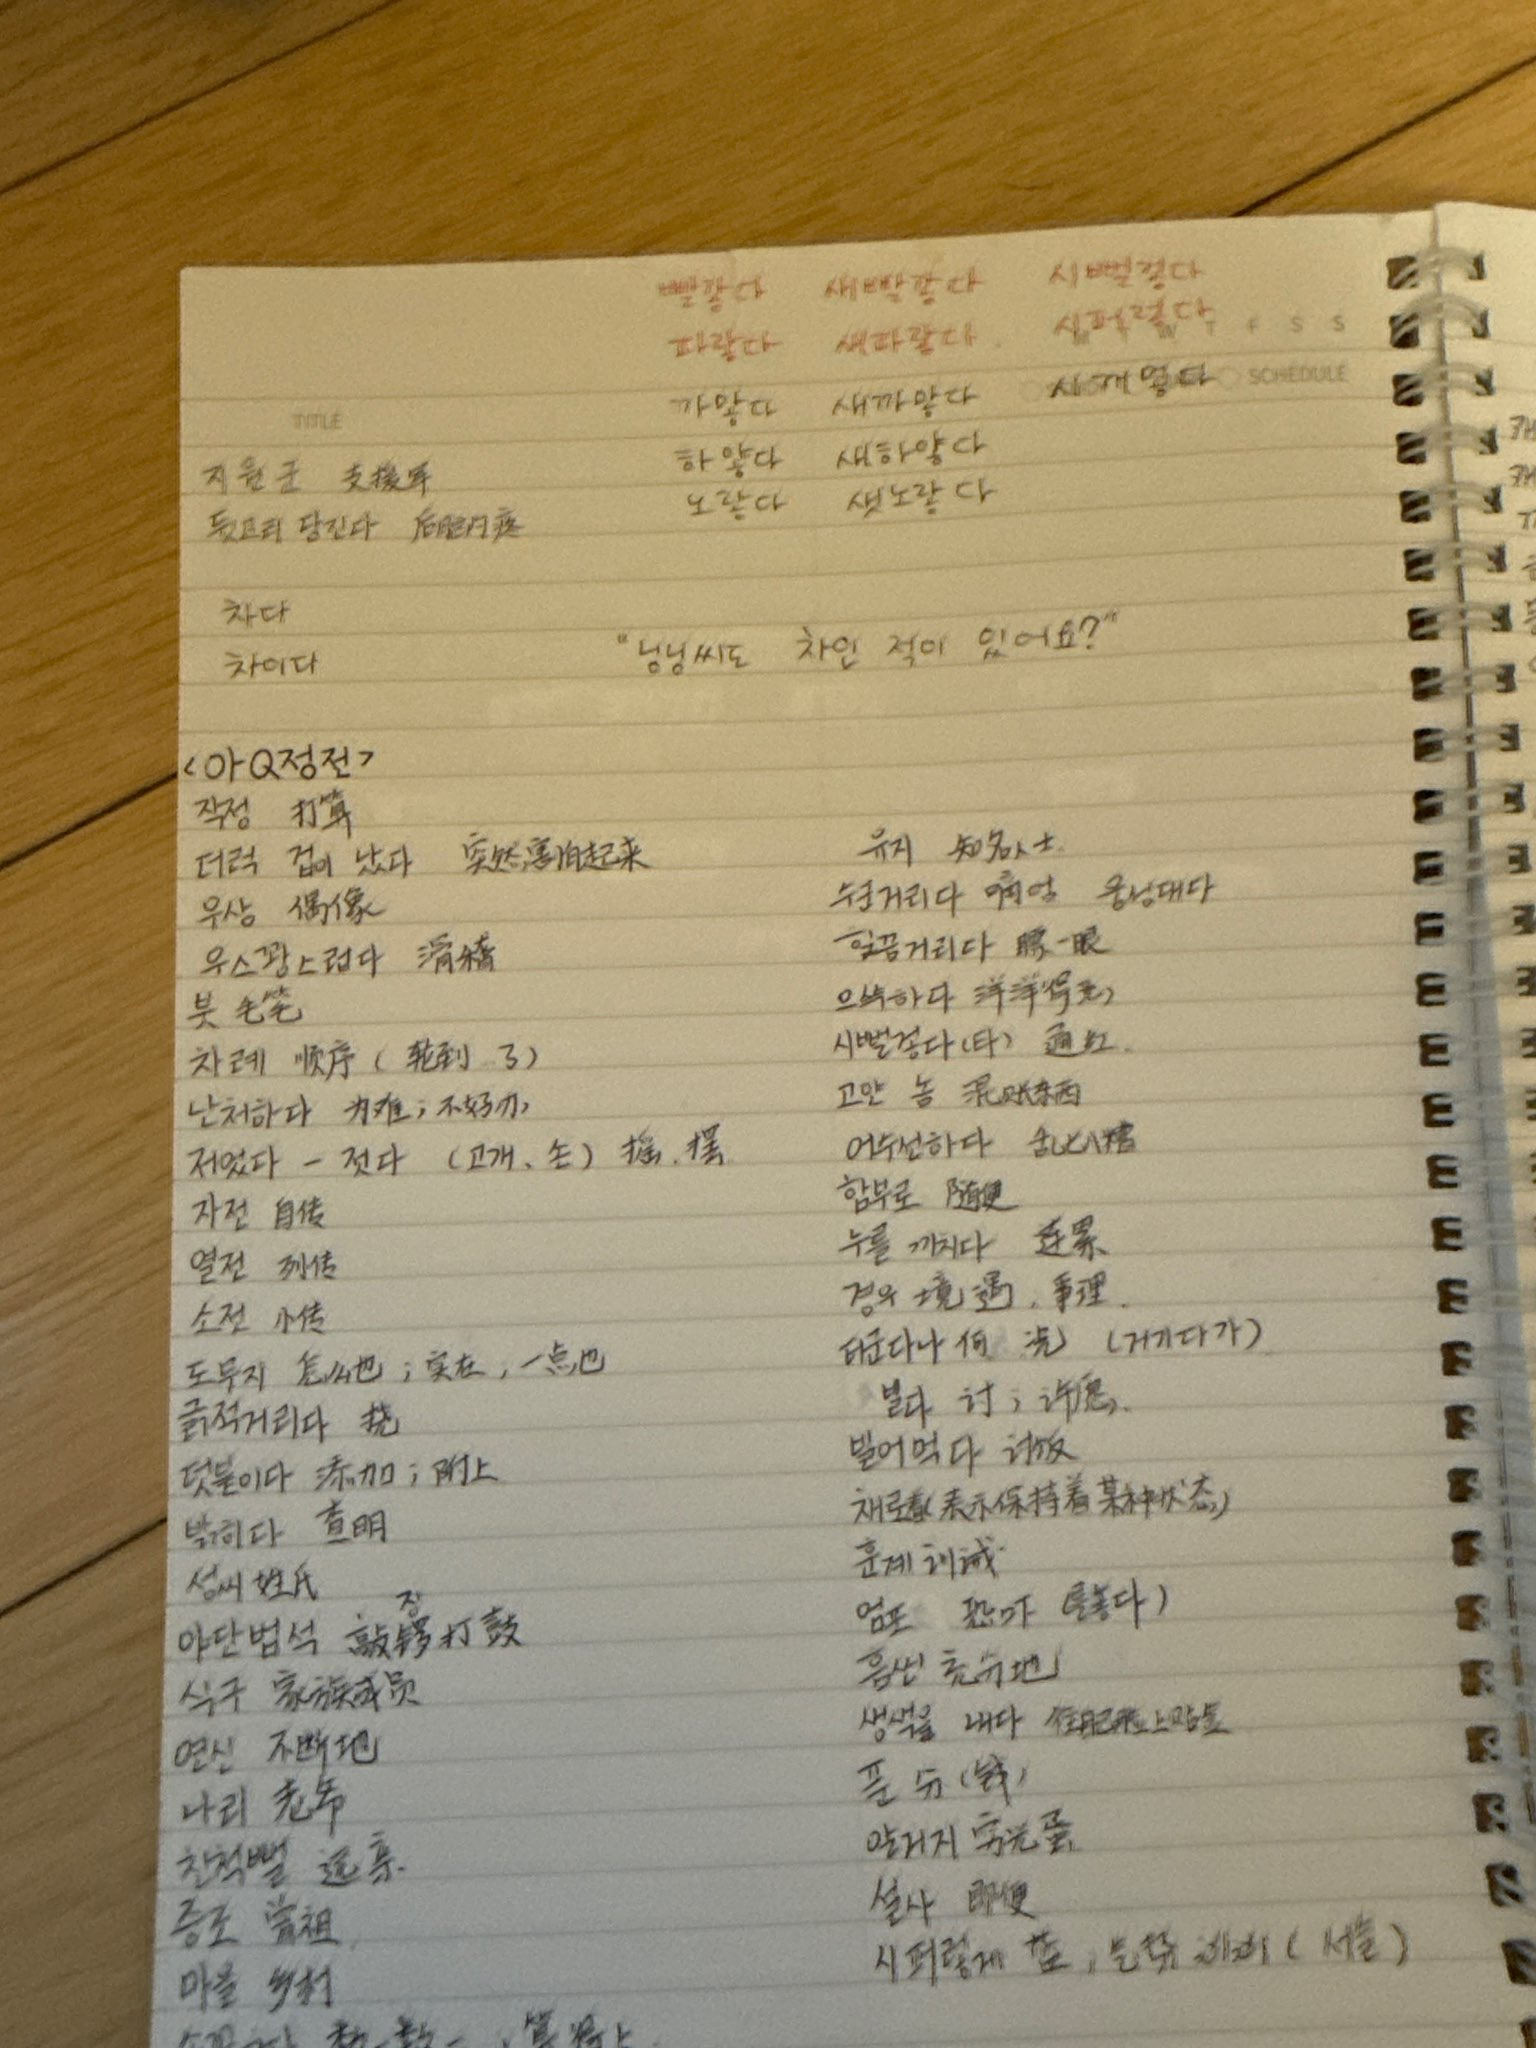 빨갛다 새빨갛다 시뻘겋다
파랗다 새파랗다 시퍼렇다
T F S S
까맣다 새까맣다 시꺼멓다
SCHEDULE
TITLE
하얗다 새하얗다
노랗다 샛노랗다
지원군 支援军
뒷고리 당긴다 后脚内疼
차다
차이다
"닝닝씨도 차인 적이 있어요?"
<아Q정전>
작정 打算
더럭 겁이 났다 突然害怕起来
우상 偶像
우스꽝스럽다 滑稽
붓 毛笔
차례 顺序(轮到了)
난처하다 为难;不好办
저었다 - 젓다 (고개、손) 摇.摆
자전 自传
열전 列传
소전 小传
도무지 怎么也;实在;一点也
긁적거리다 挠
덧붙이다 添加;附上
밝히다 查明
성씨 姓氏
장
야단법석 敲锣打鼓
식구 家族成员
연신 不断地
나리 老爷
친척뻘 远亲.
증조 曾祖
마을 乡村
유지 知名人士.
수군거리다 웅성대다
힐끔거리다 瞟一眼
으쓱하다 洋洋得意
시뻘겋다(타) 通红.
고얀 놈 混账东西
어수선하다 乱七八糟
함부로 随便
누를 끼치다 连累
경우 境遇,事理.
더군다나 何况 (거기다가)
빌다 讨;许愿.
빌어먹다 讨饭
채로 (表示保持着某种状态)
훈계 训诫
엄포 恐吓 (놓다)
흠씬 充分地
생색을 내다 往自己脸上贴金
푼 分(钱)
알거지 穷光蛋
설사 即便
시퍼렇게